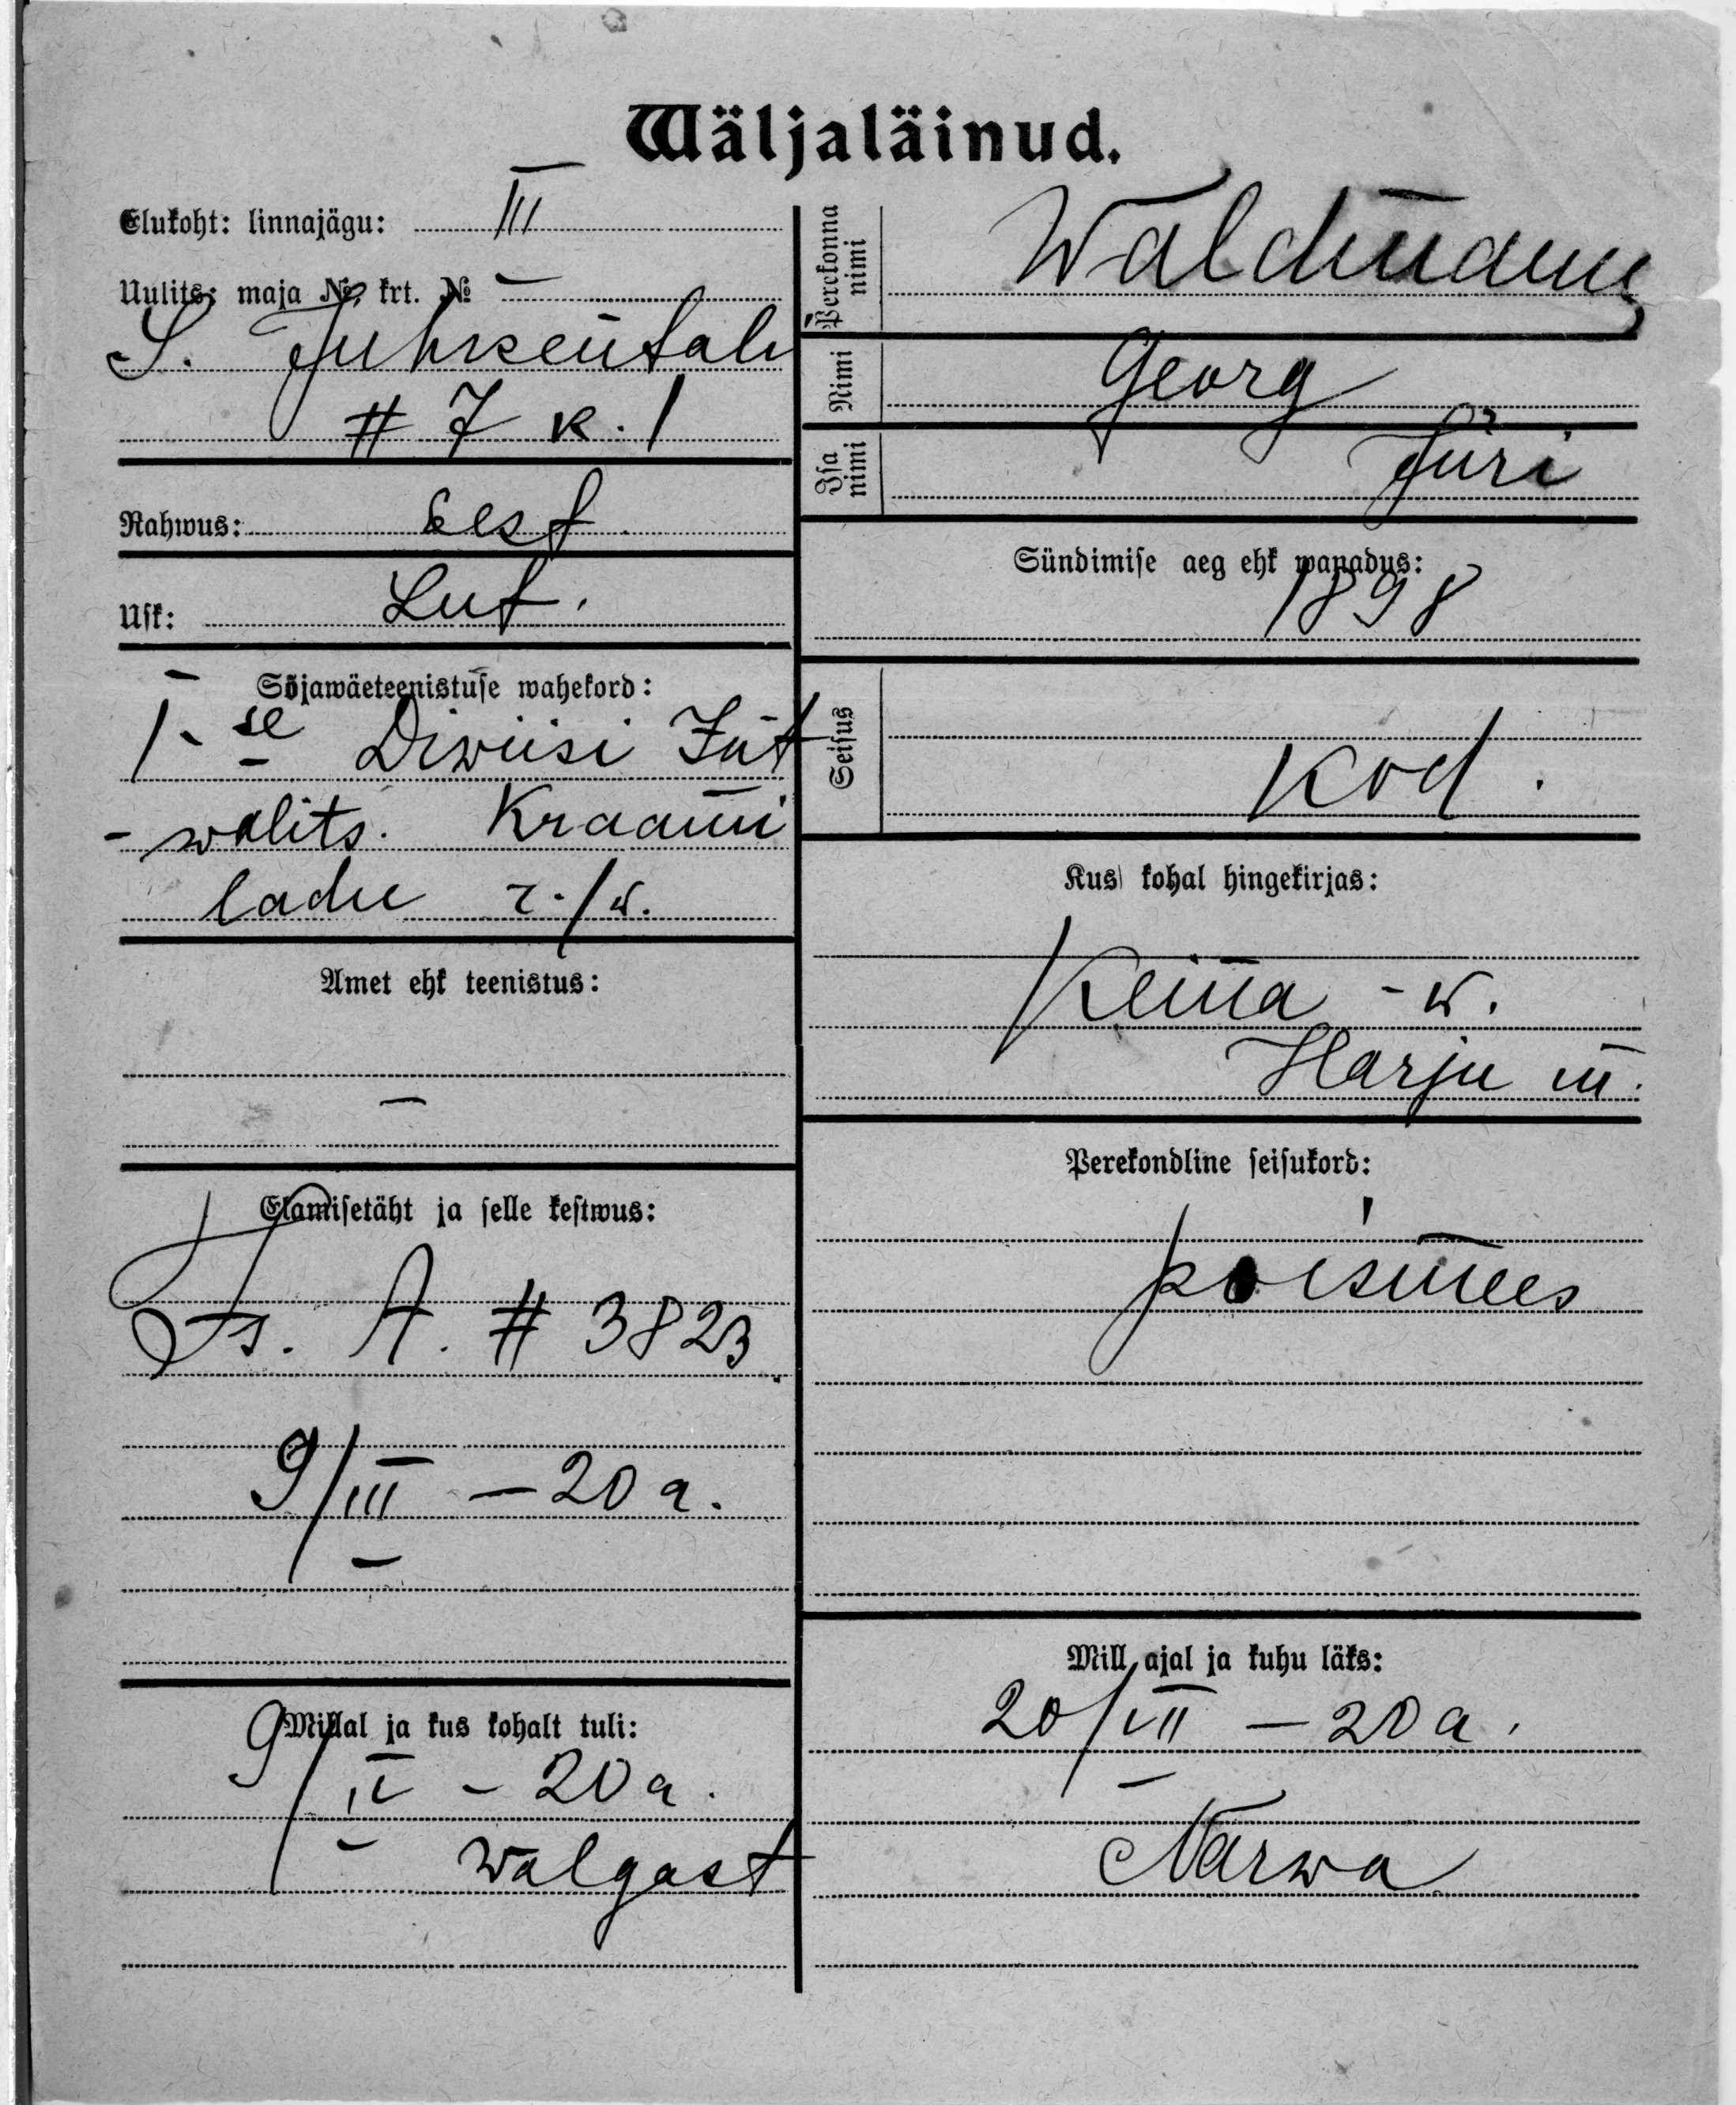 Wäljaläinud.
Elukoht: linnajägu: III
Uulits: maja № krt. №
S. Juhkentali
# 7 k. 1
Rahwus: Eest.
Usk: Lut.
Sõjawäeteenistuse wahekord:
1.se Diwiisi Int
- walits. Kraami
ladu r./w.
Amet ehk teenistus:
—
Elamisetäht ja selle kestwus:
A. # 3823
9/III — 20 a.
Millal ja kus kohalt tuli:
9/II - 20 a.
Walgast
Perekonna nimi Waldmann
Nimi Georg
Isa nimi Jüri
Sündimise aeg ehk wanadus:
1898
Seisus
Kod.
Kus kohal hingekirjas:
Keila - w.
Harju m.
Perekondline seisukord:
poismees
Mill ajal ja kuhu läks:
20/VII — 20 a.
Narwa